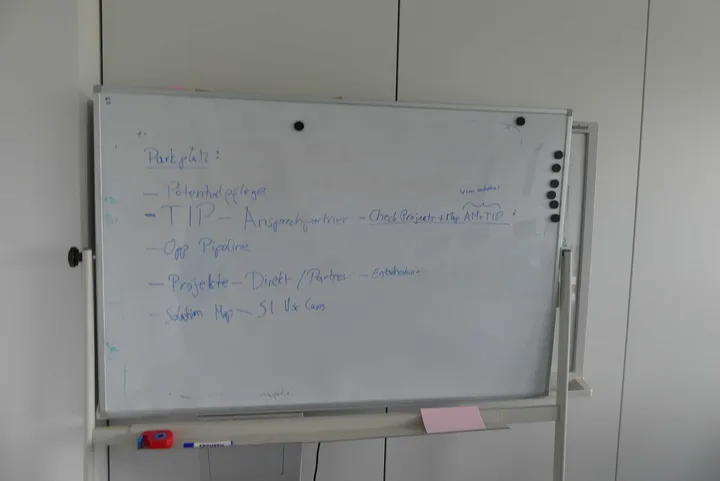 Parkplatz:
- Potentialpfleger
- TIP - Ansprechpartner - Check Projects + Map AM+TIP
- Opp Pipeline
- Projekte - Direkt / Partner -
- Solution Map - SI Use Cases